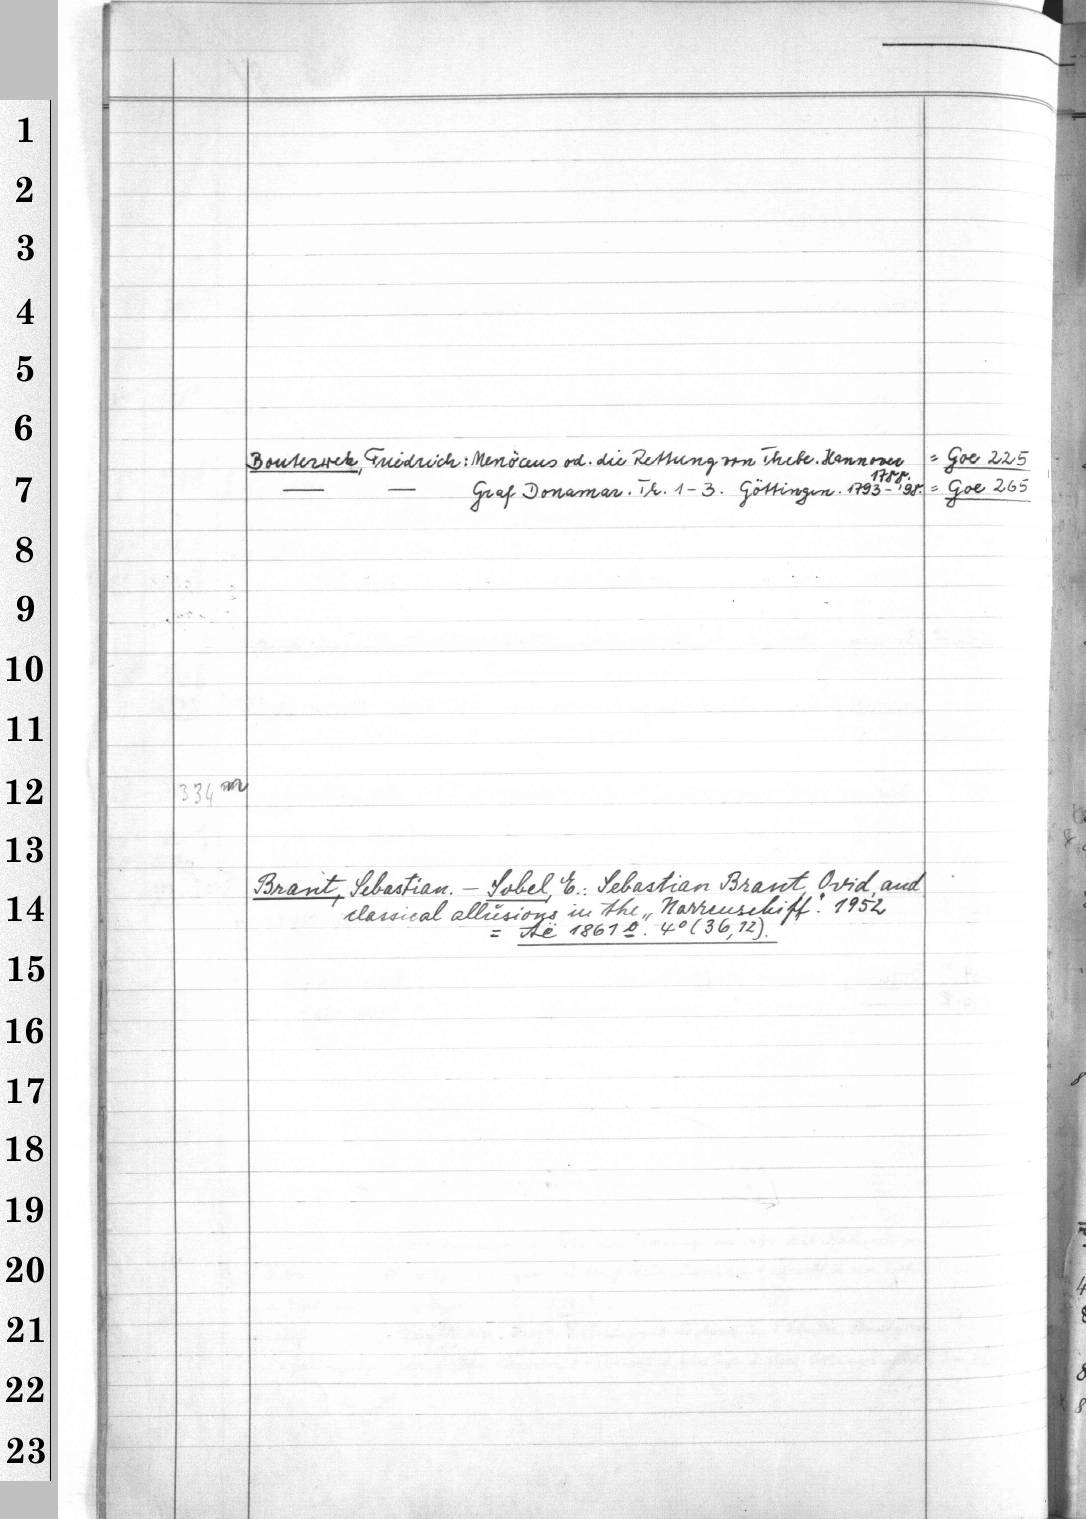 1
2
3
4
5
6
Bouterwek, Friedrich: Menöceus od. die Rettung von Thebe. Hannover 1788. = Goe 225
7
— — Graf Donamar. Th. 1-3. Göttingen. 1793-'98. = Goe 265
8
9
10
11
12
334 m
13
Brant, Sebastian. — Sobel, E.: Sebastian Brant, Ovid, and
14
classical allusions in the „Narrenschiff". 1952
= Aë 1861 o. 4° (36,12).
15
16
17
18
19
20
21
22
23